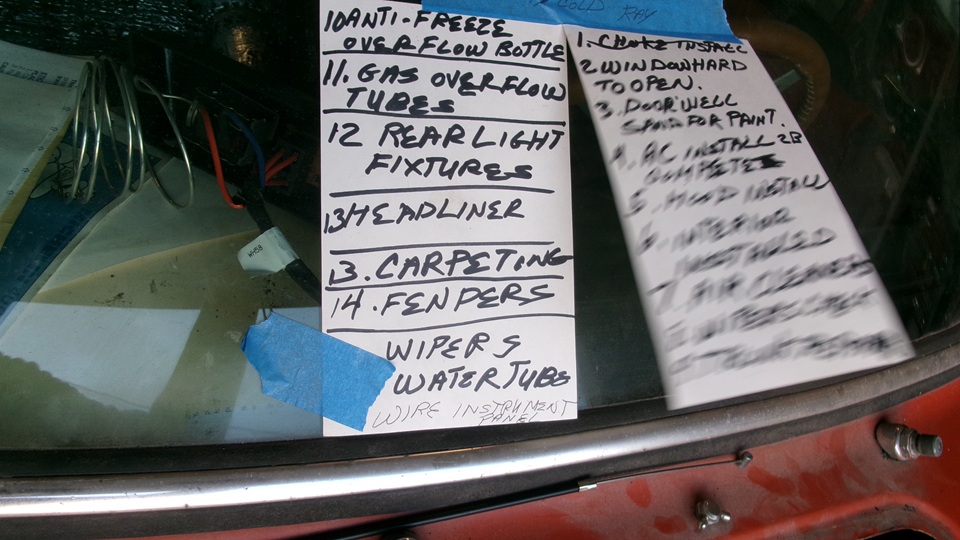 COLD RAY
10 ANTI-FREEZE
OVERFLOW BOTTLE
11. GAS OVERFLOW
TUBES
12 REAR LIGHT
FIXTURES
13 HEADLINER
13. CARPETING
14. FENDERS
WIPERS
WATER TUBE
WIRE INSTRUMENT
PANEL
1. CHOKE INSTALL
2 WINDOW HARD
TO OPEN.
3. DOOR WELL
SAND FOR PAINT.
4. AC INSTALL 2B
5. HOOD INSTALL
6. INTERIOR
INSTALLED
7. AIR CLEANER